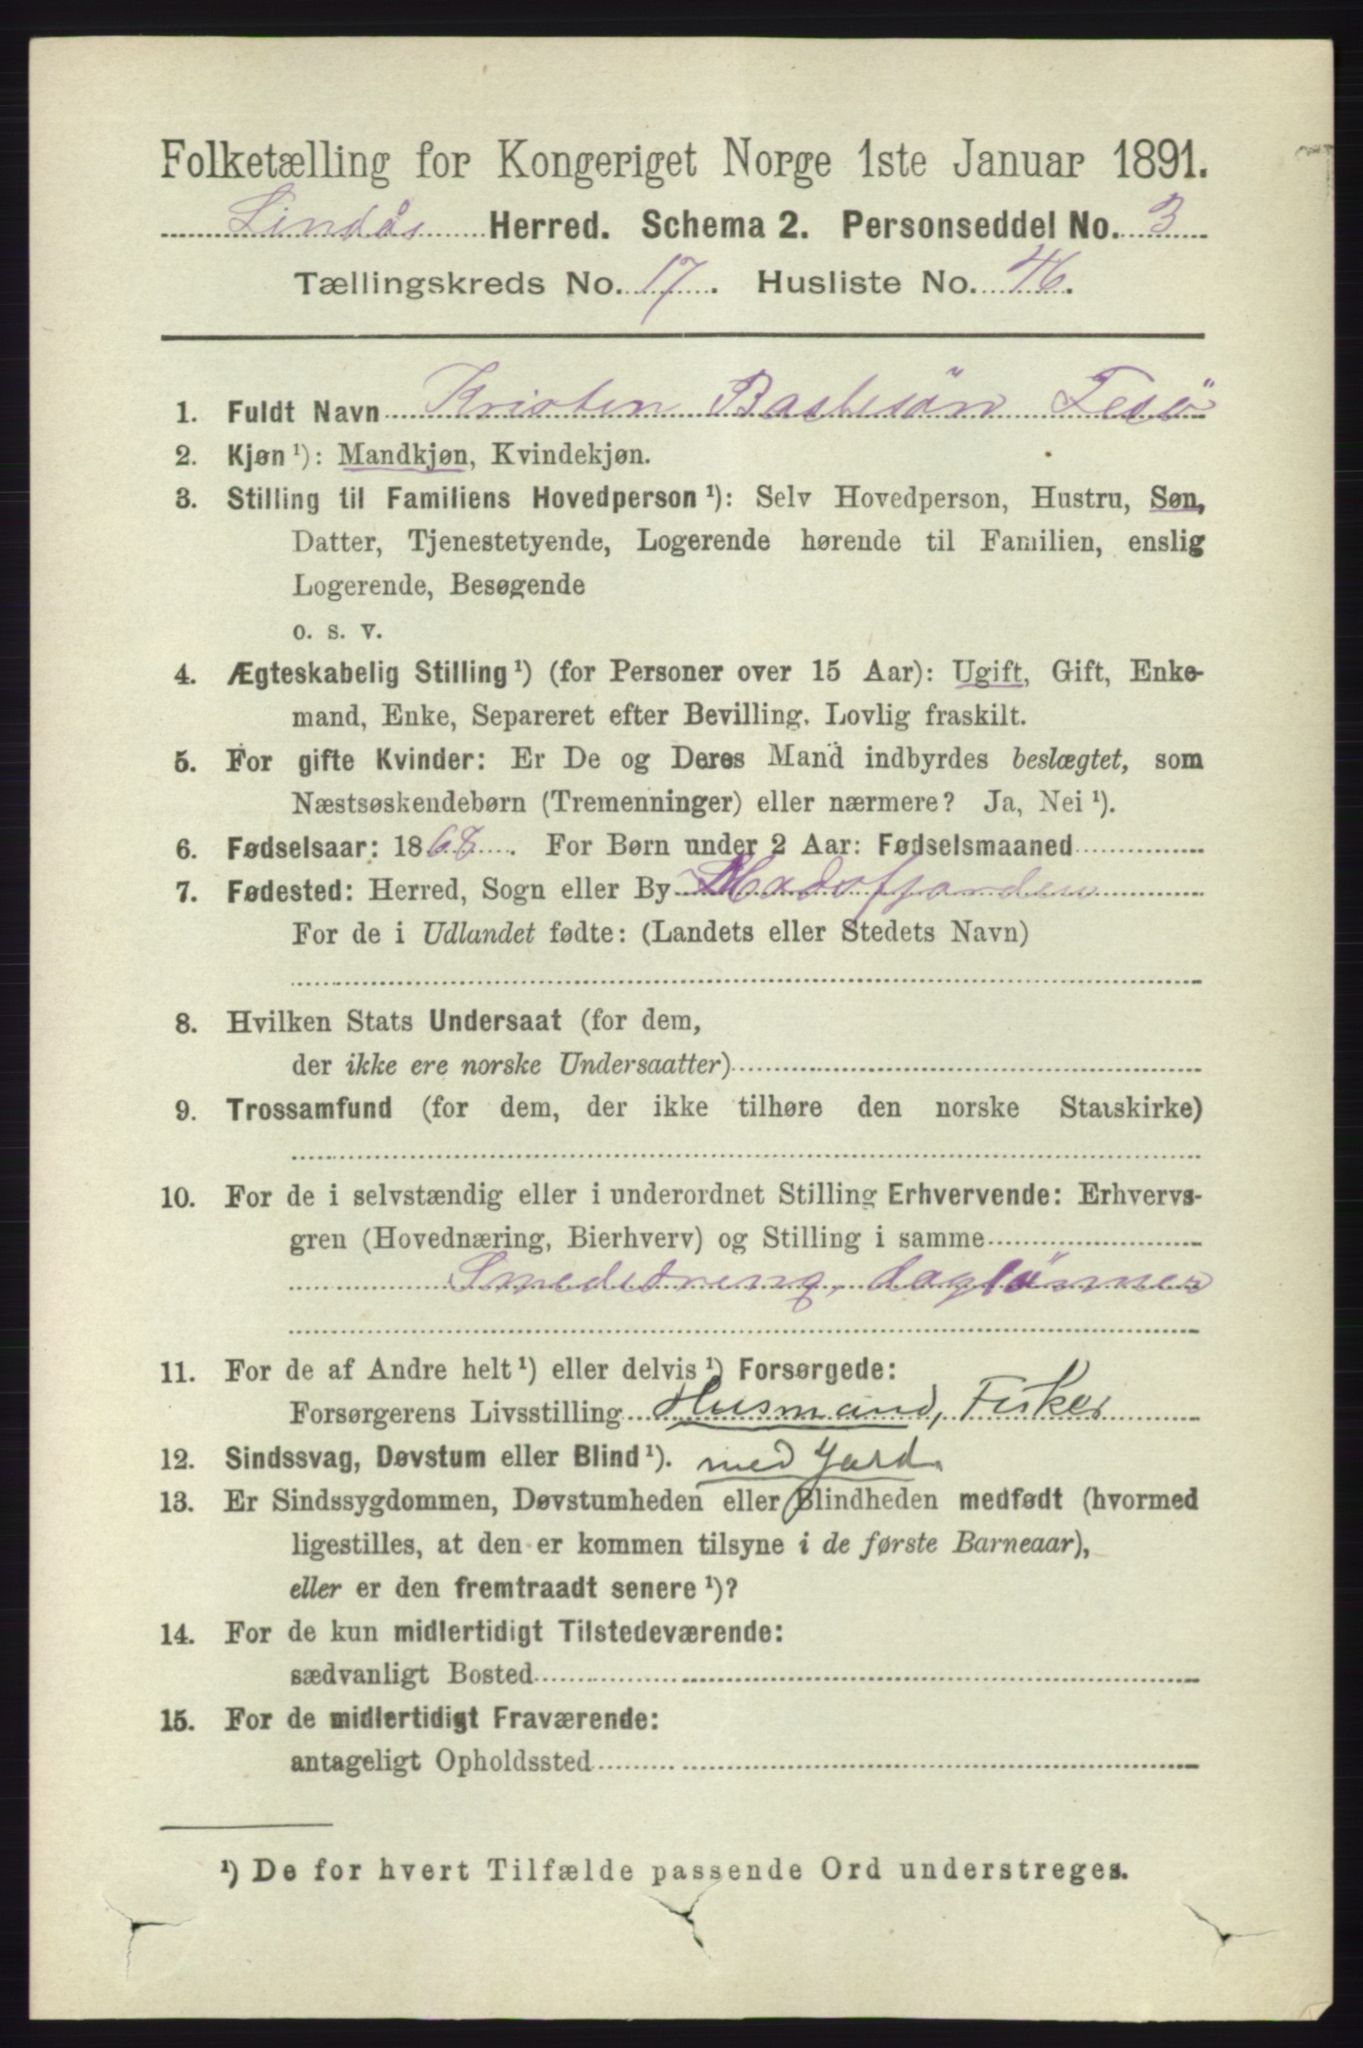 Folketælling for Kongeriget Norge 1ste Januar 1891.
Lindås Herred. Schema 2. Personseddel No. 3
Tællingskreds No. 17. Husliste No. 46.
1. Fuldt Navn Kristen Bastesön Fesö
2. Kjøn ¹): Mandkjøn, Kvindekjøn.
3. Stilling til Familiens Hovedperson ¹): Selv Hovedperson, Hustru, Søn,
Datter, Tjenestetyende, Logerende hørende til Familien, enslig
Logerende, Besøgende
o. s. v.
4. Ægteskabelig Stilling ¹) (for Personer over 15 Aar): Ugift, Gift, Enke-
mand, Enke, Separeret efter Bevilling. Lovlig fraskilt.
5. For gifte Kvinder: Er De og Deres Mand indbyrdes beslægtet, som
Næstsøskendebørn (Tremenninger) eller nærmere? Ja, Nei ¹).
6. Fødselsaar: 1868. For Børn under 2 Aar: Fødselsmaaned
7. Fødested: Herred, Sogn eller By Masfjorden
For de i Udlandet fødte: (Landets eller Stedets Navn)
8. Hvilken Stats Undersaat (for dem,
der ikke ere norske Undersaatter)
9. Trossamfund (for dem, der ikke tilhøre den norske Statskirke)
10. For de i selvstændig eller i underordnet Stilling Erhvervende: Erhvervs-
gren (Hovednæring, Bierhverv) og Stilling i samme
Smededreng, daglönner
11. For de af Andre helt ¹) eller delvis ¹) Forsørgede:
Forsørgerens Livsstilling Husmand, Fisker
12. Sindssvag, Døvstum eller Blind ¹). med Jord.
13. Er Sindssygdommen, Døvstumheden eller Blindheden medfødt (hvormed
ligestilles, at den er kommen tilsyne i de første Barneaar),
eller er den fremtraadt senere ¹)?
14. For de kun midlertidigt Tilstedeværende:
sædvanligt Bosted
15. For de midlertidigt Fraværende:
antageligt Opholdssted
¹) De for hvert Tilfælde passende Ord understreges.